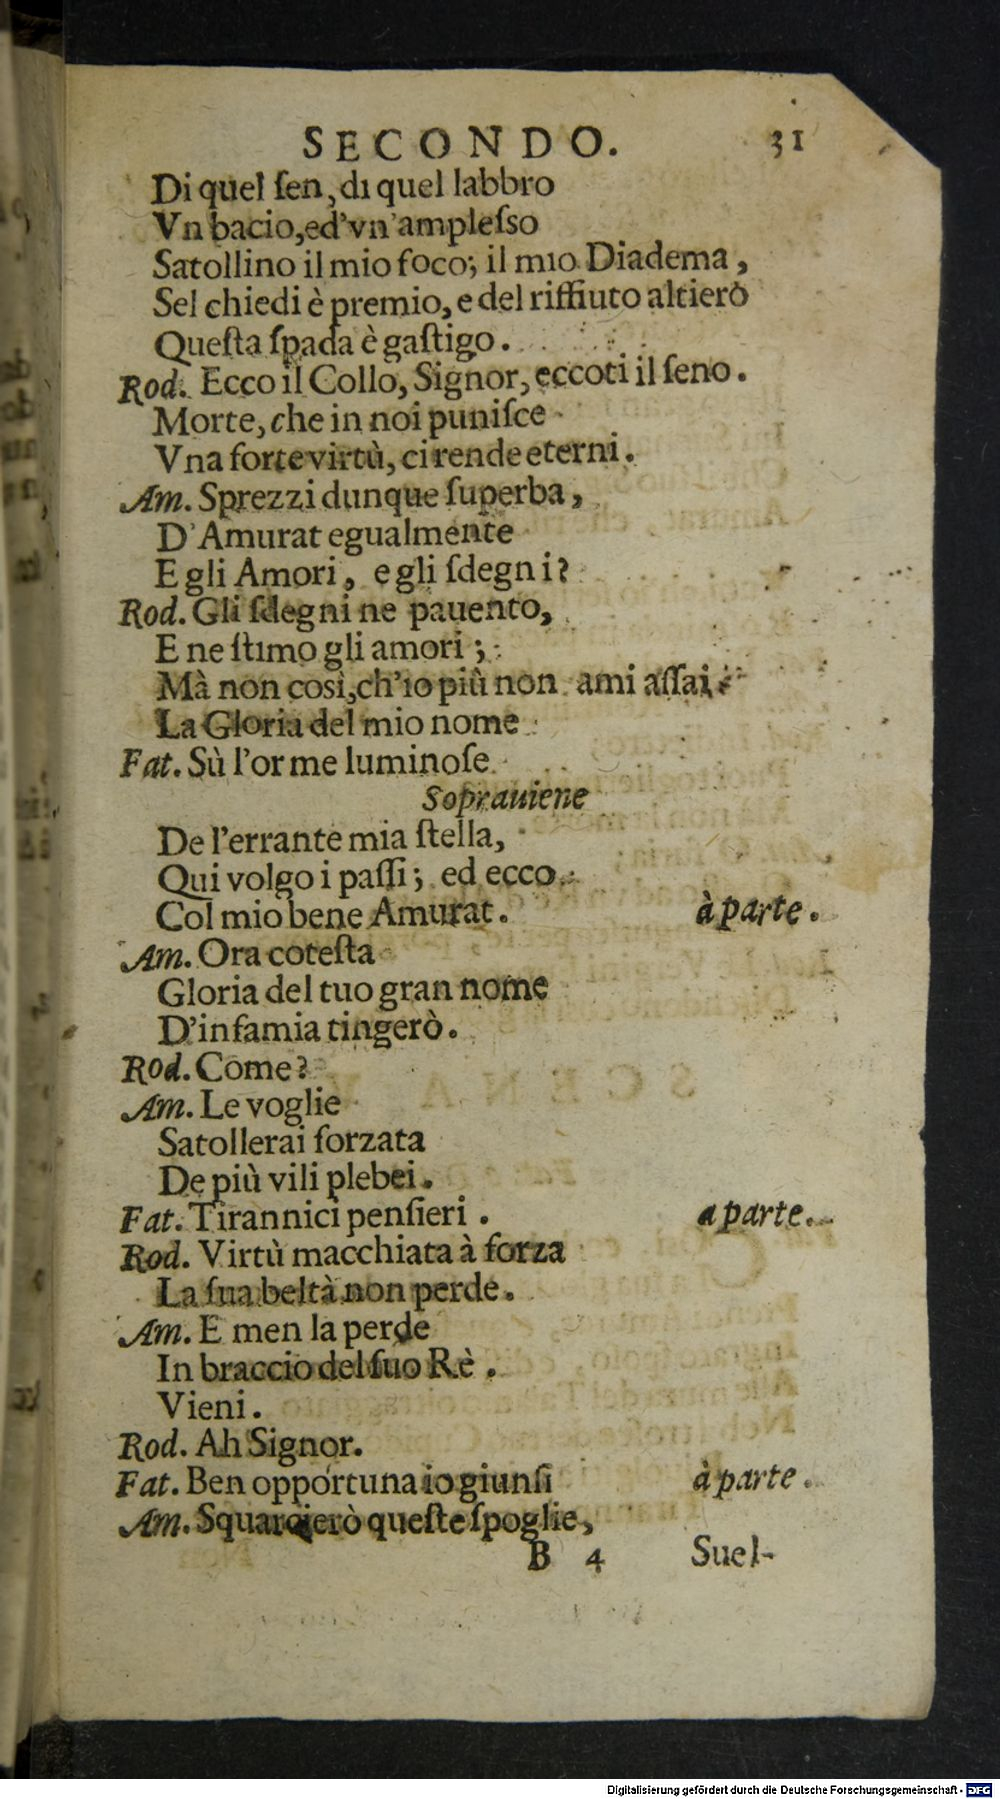 SECONDO. 31
Di quel ſen, di quel labbro
Vn bacio, ed'vn'ampleſso
Satollino il mio foco; il mio Diadema,
Sel chiedi è premio, e del riffiuto altierò
Queſta ſpada è gaſtigo.
Rod. Ecco il Collo, Signor, eccoti il ſeno.
Morte, che in noi puniſce
Vna forte virtù, ci rende eterni.
Am. Sprezzi dunque ſuperba,
D'Amurat egualmente
E gli Amori, e gli ſdegni?
Rod. Gli ſdegni ne pauento,
E ne ſtimo gli amori;
Mà non così, ch'io più non ami aſſai
La Gloria del mio nome
Fat. Sù l'orme luminoſe
Soprauiene
De l'errante mia ſtella,
Qui volgo i paſſi; ed ecco
Col mio bene Amurat. à parte.
Am. Ora coteſta
Gloria del tuo gran nome
D'infamia tingerò.
Rod. Come?
Am. Le voglie
Satollerai forzata
De più vili plebei.
Fat. Tirannici penſieri. a parte.
Rod. Virtù macchiata à forza
La ſua beltà non perde.
Am. E men la perde
In braccio del ſuo Rè.
Vieni.
Rod. Ah Signor.
Fat. Ben opportuna io giunſi à parte.
Am. Squarcierò queſte ſpoglie,
B 4 Suel-
Digitalisierung gefördert durch die Deutsche Forschungsgemeinschaft - DFG